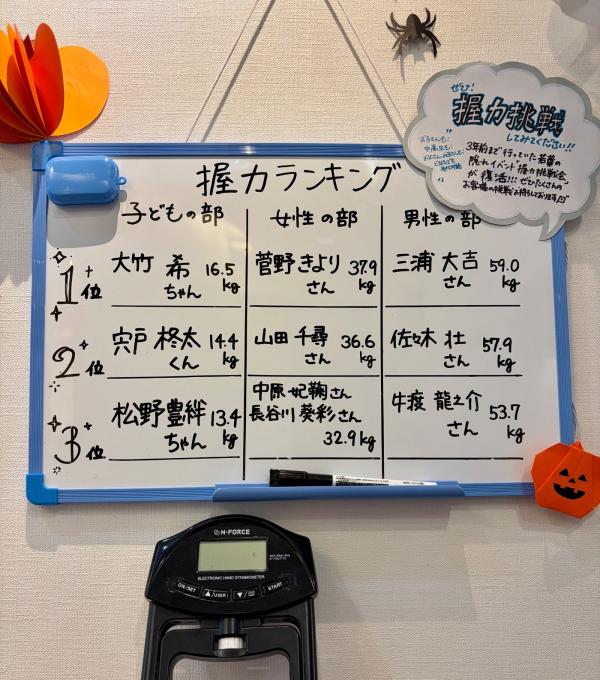 ぜひ!
握力挑戦
してみてください!!
お子さんも!
中高生も!
3年前まで行っていた若葦の
隠れイベント"握力挑戦会"
が復活!!! ぜひたくさんの
お客様の挑戦お待ちしております
握力ランキング
子どもの部
女性の部
男性の部
1位
大竹 希 16.5
ちゃん kg
菅野きより 37.9
さん kg
三浦 大吉 59.0
さん kg
2位
宍戸 柊太 14.4
くん kg
山田 千尋 36.6
さん kg
佐々木 壮 57.9
さん kg
3位
松野豊絆 13.4
ちゃん kg
中原 妃鞠さん
長谷川 葵彩さん
32.9kg
牛渡 龍之介 53.7
さん kg
N-FORCE
ELECTRONIC HAND DYNAMOMETER
ON/SET
▲/USER
START